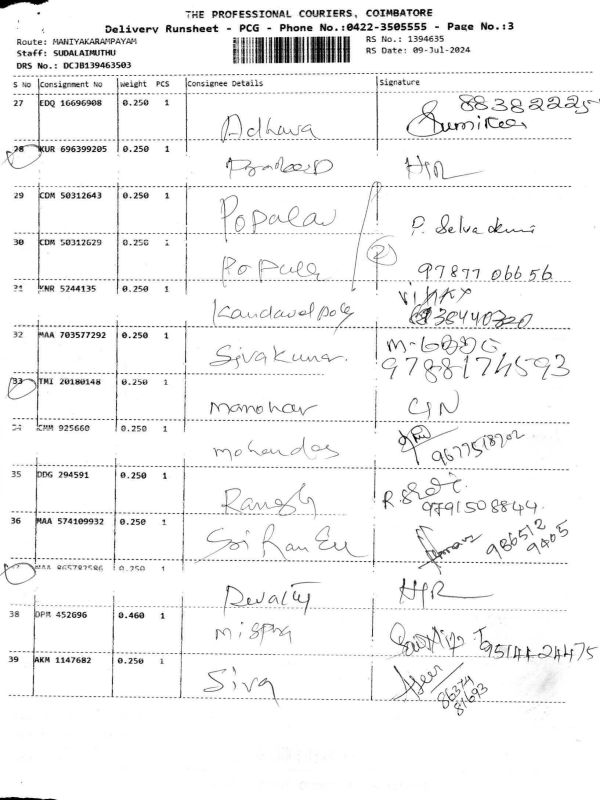 THE PROFESSIONAL COURIERS, COIMBATORE
Delivery Runsheet - PCG - Phone No.:0422-3505555 - Page No.:3
Route: MANIYAKARAMPAYAM
RS No.: 1394635
Staff: SUDALAIMUTHU
RS Date: 09-Jul-2024
DRS No.: DCJB139463503
S No Consignment No Weight PCS Consignee Details Signature
27 EDQ 16696908 0.250 1
Adhava
28 KUR 696399205 0.250 1
Pradeep
29 CDM 50312643 0.250 1
Popular P. Selva
30 CDM 50312629 0.250 1 2
Popular 97877 06656
31 KNR 5244135 0.250 1
32 MAA 703577292 0.250 1
Sivakumar. 9788174593
33 TMI 20180148 0.250 1
Manohar
34 CMM 925660 0.250 1
mohandas 9677518702
35 DDG 294591 0.250 1
9791508844
36 MAA 574109932 0.250 1
986512
9405
37 MAA 865782586 0.250 1
38 DPM 452696 0.460 1
9514424475
39 AKM 1147682 0.250 1
Siva
86374
81693